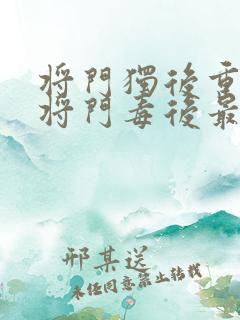 将門獨後重
将門毒後最
邢某送
未任同意禁止转载